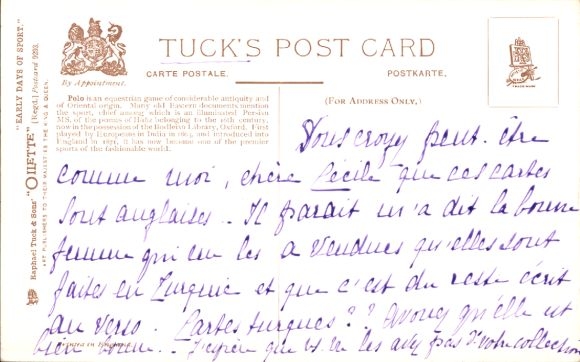 "EARLY DAYS OF SPORT."
Raphael Tuck & Sons' "OILETTE" [Regd.] Postcard 9293.
ART PUBLISHERS TO THEIR MAJESTIES THE KING & QUEEN.
By Appointment.
TUCK'S POST CARD
CARTE POSTALE.
POSTKARTE.
TRADE MARK
Polo is an equestrian game of considerable antiquity and
of Oriental origin. Many old Eastern documents mention
the sport, chief among which is an illuminated Persian
MS. of the poems of Hafiz belonging to the 16th century,
now in the possession of the Bodleian Library, Oxford. First
played by Europeans in India in 1863, and introduced into
England in 1871, it has now become one of the premier
sports of the fashionable world.
(FOR ADDRESS ONLY.)
Vous croyez peut-être
comme moi, chère Cécile que ces cartes
sont anglaises.. Il parait m'a dit la bonne
femme qui me les a vendues qu'elles sont
faites en Turquie et que c'est du reste écrit
au verso. Cartes turques?? Avouez qu'elle est
bien bonne. - J'espère que vs. ne les avez pas ds votre collection
Printed in England.